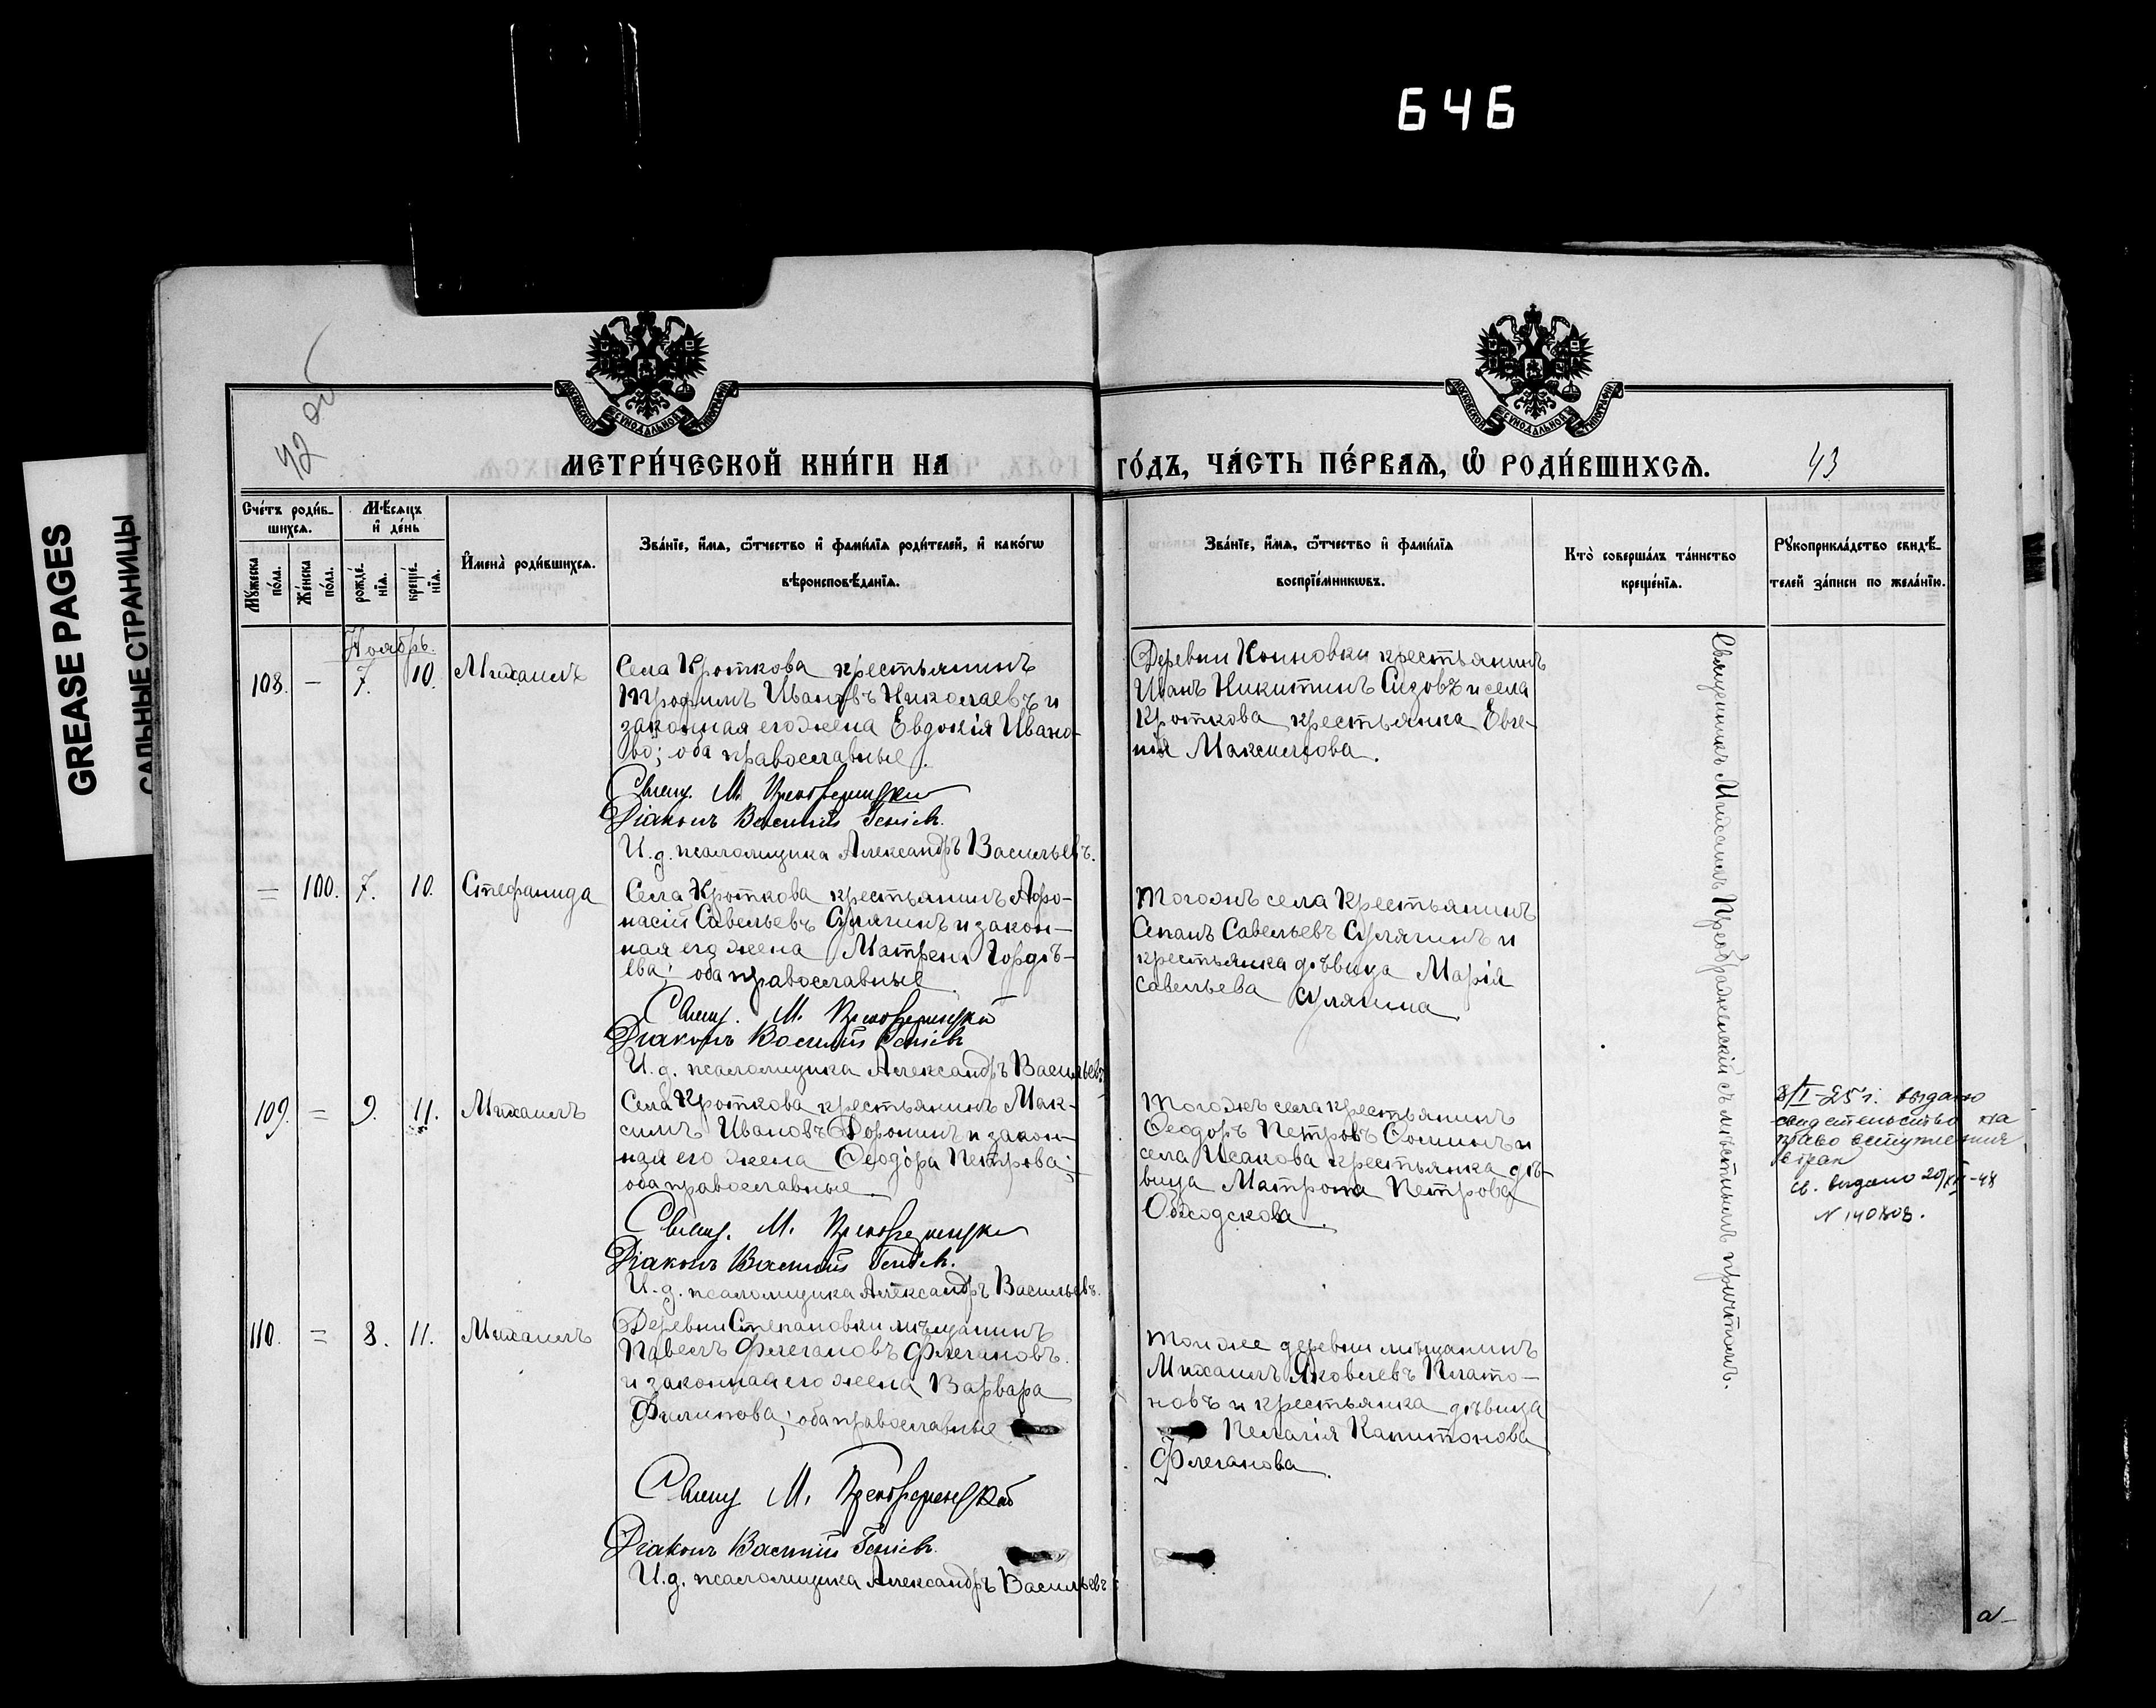 646
GREASE PAGES
САЛЬНЫЕ СТРАНИЦЫ
42 об
МЕТРИ́ЧЕСКОЙ КНИ́ГИ НА
ГО́ДЪ, ЧА́СТЬ ПЕ́РВАЯ, Ѡ РОДИ́ВШИХСЯ.
43
Сче́тъ роди́в-
шихся.
Мѣ́сяцъ
и де́нь
Му́жеска
по́ла.
Же́нска
по́ла.
рожде́-
нїя.
креще́-
нїя.
Имена̀ роди́вшихся.
Зва́нїе, и́мя, ѻ́тчество и фами́лїя роди́телей, и како́гѡ
вѣроисповѣ́данїя.
Зва́нїе, и́мя, ѻ́тчество и фами́лїя
воспрїе́мникѡвъ.
Кто̀ соверша́лъ та́инство
креще́нїя.
Рꙋкоприкла́дство свидѣ́-
телей за́писи по жела́нїю.
Ноябрь.
108. — 7. 10. Михаилъ
Села Кроткова крестьянинъ
Трофимъ Ивановъ Николаевъ и
законная его жена Евдокія Ивано-
ва; оба православные.
Свящ. М. Преображенскій
Діаконъ Василій
И. д. псаломщика Александръ Васильевъ.
Деревни Конновки крестьянинъ
Иванъ Никитинъ Сизовъ и села
Кроткова крестьянка Евге-
нія Максимова.
Священникъ Михаилъ Преображенскій съ мѣстнымъ причтомъ.
= 100. 7. 10. Стефанида
Села Кроткова крестьянинъ Афо-
насій Савельевъ Сулягинъ и закон-
ная его жена Матрена Гордѣ-
ева; оба православные.
Свящ. М. Преображенскій
Діаконъ Василій
И. д. псаломщика Александръ Васильевъ
Тогожъ села крестьянинъ
Савельевъ Сулягинъ и
крестьянка дѣвица Марія
Савельева Сулягина.
109. = 9. 11. Михаилъ
Села Кроткова крестьянинъ Мак-
симъ Ивановъ Доронинъ и закон-
ная его жена Ѳеодора Петрова;
оба православные.
Свящ. М. Преображенскій
Діаконъ Василій
И. д. псаломщика Александръ Васильевъ.
Тогожъ села крестьянинъ
Ѳеодоръ Петровъ Соминъ и
села Исакова крестьянка дѣ-
вица Матрона Петрова
8/I-25 г. выдано
свидетельство на
право вступления
в брак
св. выдано 20/XII-48
N 140808.
110. = 8. 11. Михаилъ
Деревни Степановки мѣщанинъ
Павелъ Флегановъ Флегановъ.
и законная его жена Варвара
Филипова; оба православные
Свящ М. Преображенскій
Діаконъ Василій
И. д. псаломщика Александръ Васильевъ
Той же деревни мѣщанинъ
Михаилъ Яковлевъ Плато-
новъ и крестьянка дѣвица
Пелагія Капитонова
Флеганова.